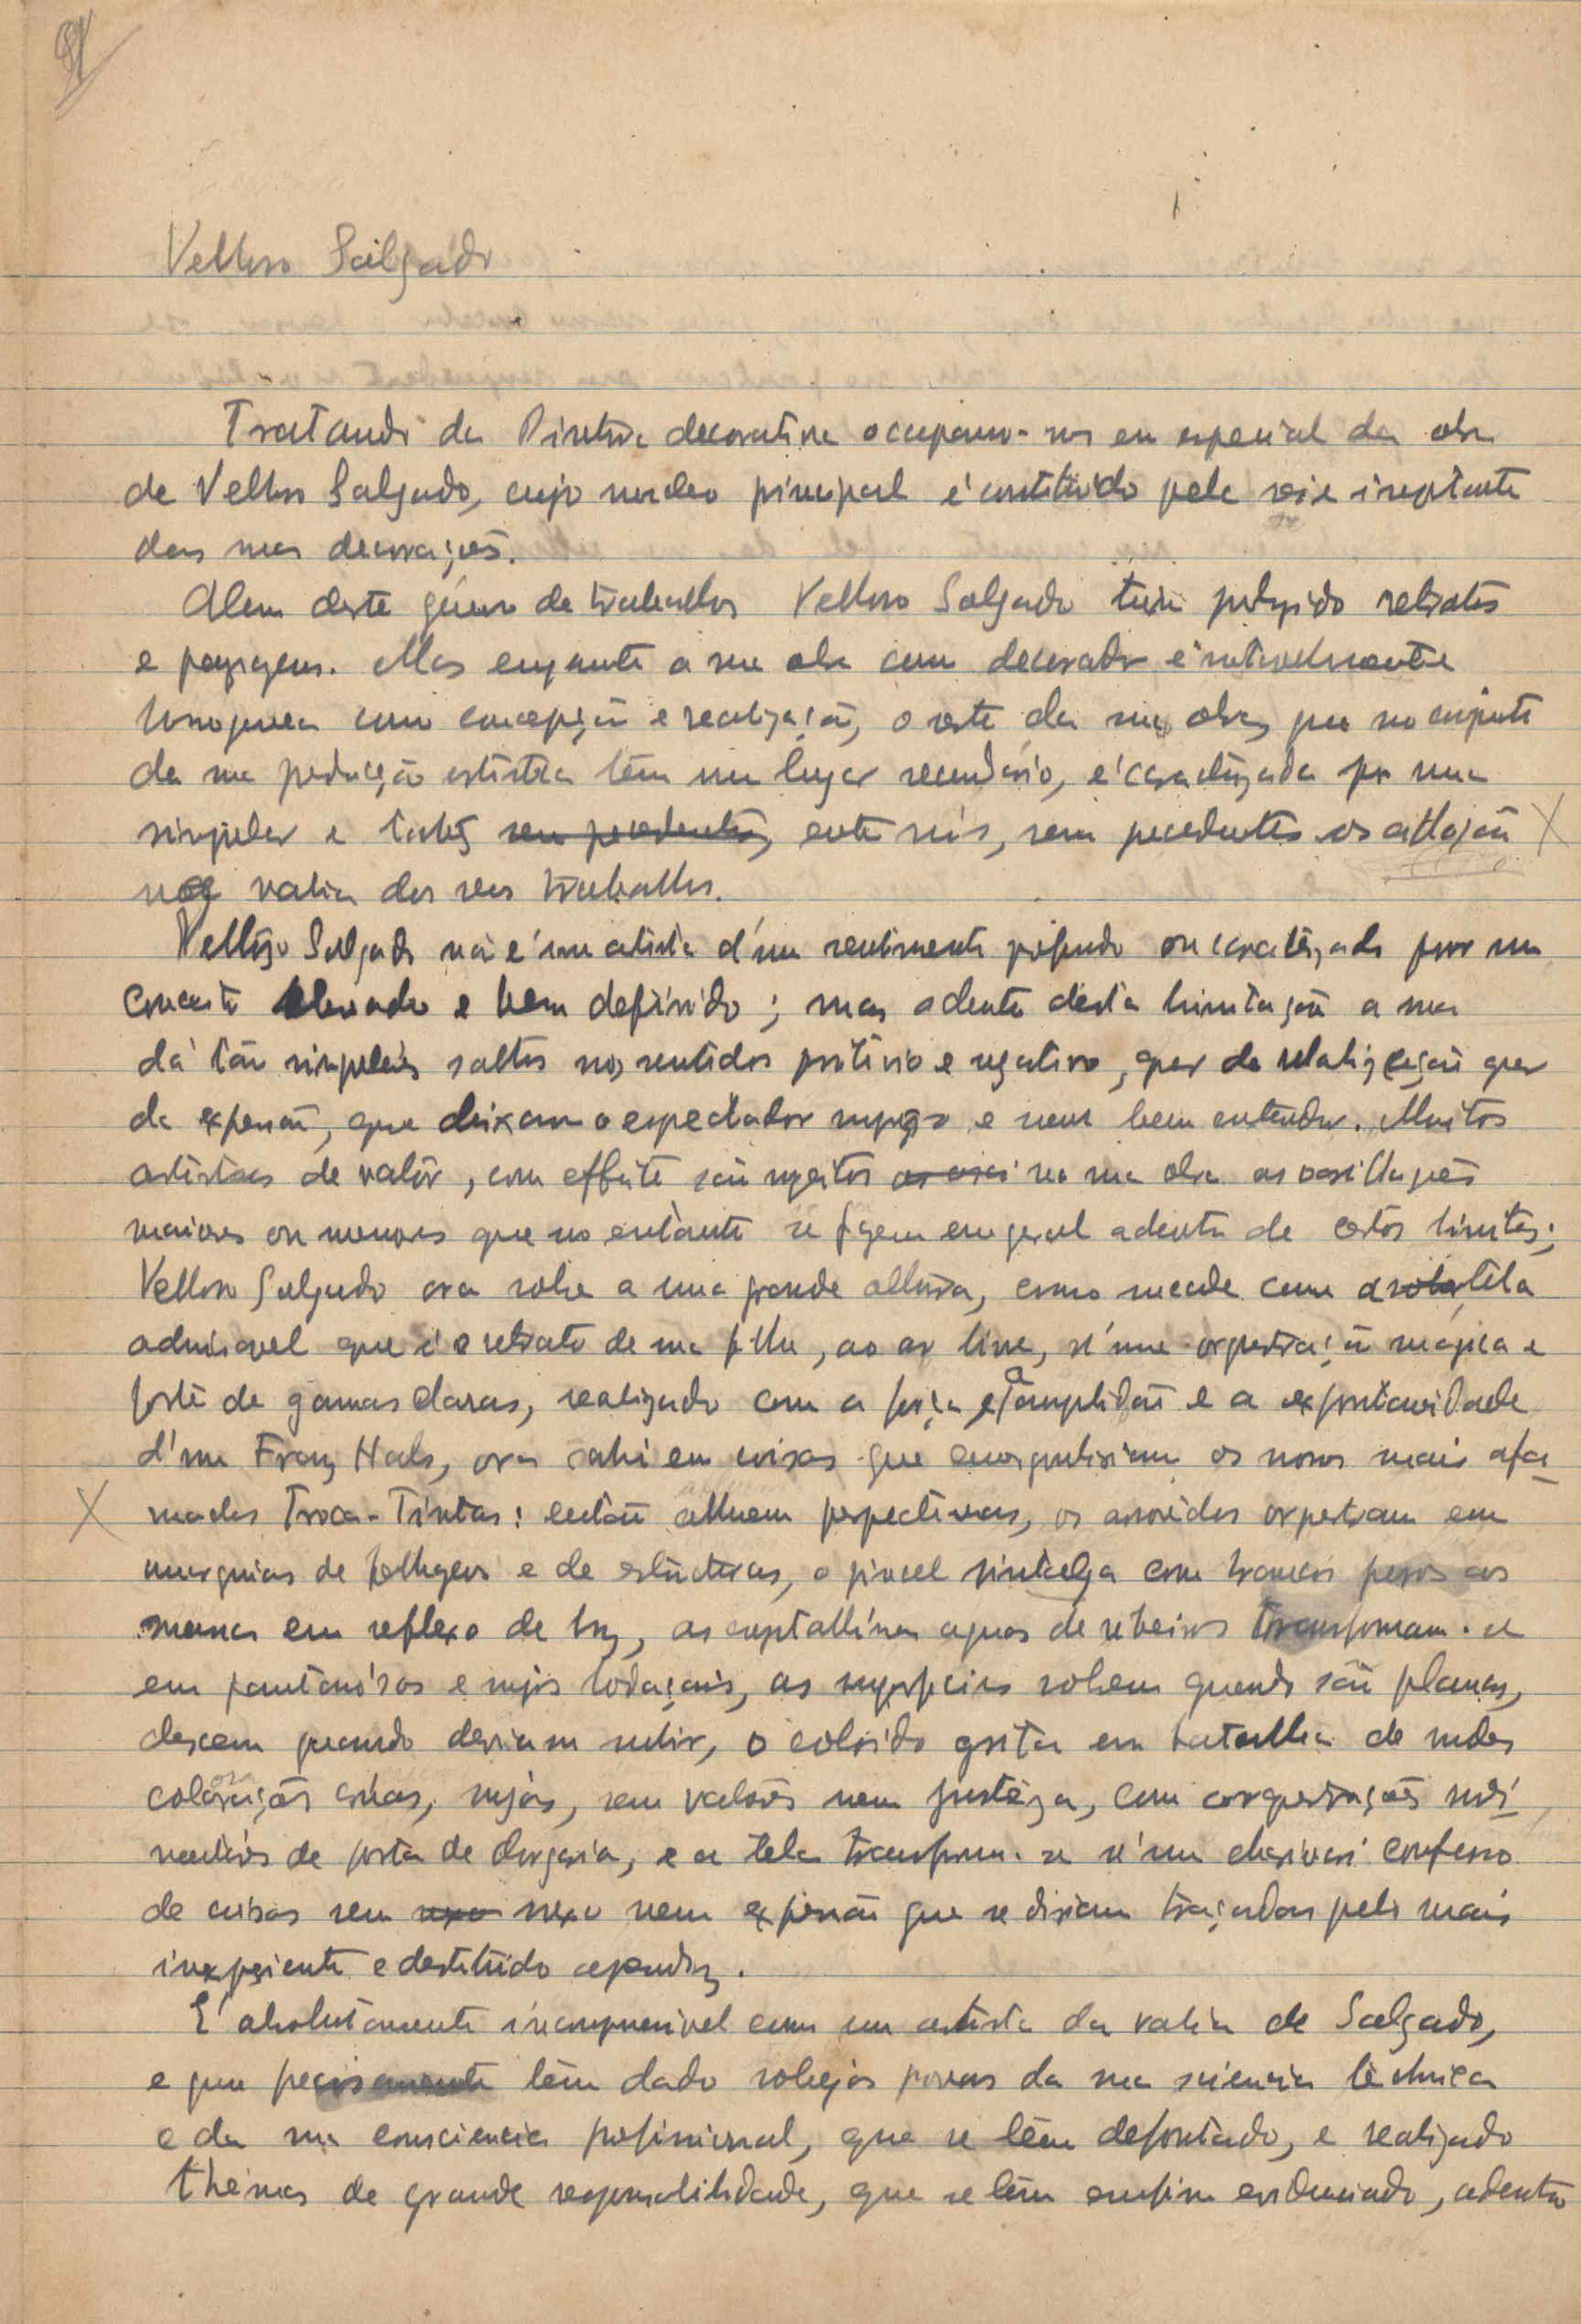 91
Velloso Salgado
Tratando da Pintura decorativa occupamo-nos em especial da obra
de Velloso Salgado, cujo nucleo principal é constituido pela serie importante
das suas decorações.
Alem deste género de trabalhos Velloso Salgado tem produzido retratos
e paysagens. Mas emquanto a sua obra como decorador é notavelmente
homogenea como concepção e realização, o resto da sua obra, que no conjunto
da sua producção artistica têm um lugar secundário, é caracterizada por uma
singular e talvez sem precedentes, entre nós, sem precedentes oscillação
na valia dos seus trabalhos.
Velloso Salgado não é um artista d'um sentimento profundo ou caracterizado por um
conceito elevado e bem definido; mas adentro desta limitação a sua
dá tão singulares saltos nos sentidos positivo e negativo, quer da realização quer
da expressão, que deixam o espectador surprezo e sem bem entender. Muitos
artistas de valôr, com effeito são sujeitos as osci na sua obra as oscillações
maiores ou menores que no entanto se fazem em geral adentro de certos limites;
Velloso Salgado ora sobe a uma grande altura, como sucede com a tela
admiravel que é o retrato de sua filha, ao ar livre, n'uma orquestração mágica e
forte de gamas claras, realizado com a força, a amplidão e a expontaneidade
d'um Franz Hals, ora cahi em coisas que envergonhariam os nossos mais afa
mados Troca-Tintas: então alluem perspectivas, os arvoredos orquestram em
murguias de folhagens e de estructuras, o pincel sintetiza com brancos puros as
massas em reflexo de luz, as crystallinas aguas de ribeiros transformam-se
em pantanósos e sujos lodaçais, as superficies sobem quando são planas,
descem quando deviam subir, o colorido grita em batalha de rudes
colorações crúas, sujas, sem valôres nem justêza, com orquestrações rudi
mentáres de porta de drogaria, e a tela transforma-se n'um charivari confuso
de coisas sem nexo nexo nem expressão que se diriam traçadas pelo mais
inexperiente e destituido aprendiz.
É absolutamente incomprensivel como um artista da valia de Salgado,
e que precisamente têm dado sobejas provas da sua sciencia téchnica
e da sua consciencia profissional, que se têm defrontado, e realizado
thémas de grande responsabilidade, que se têm emfim evidenciado, adentro